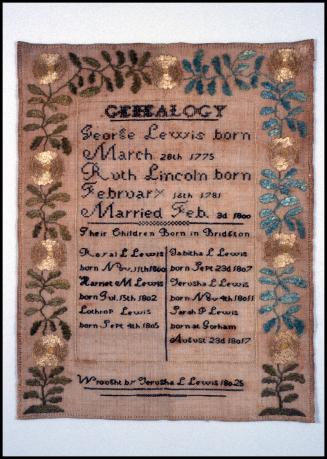 GENEALOGY
George Lewis born
March 28th 1775
Ruth Lincoln born
February 16th 1781
Married Feb. 3d 1800
Their Children Born in Bridgton
L Lewis
born Nov. 11th 1800
Harriet M Lewis
born Jul. 15th 1802
Lothrop Lewis
born Sept 4th 1805
Tabitha L Lewis
born Sept 23d 1807
Jerusha L Lewis
born Nov 4th 18011
Sarah P Lewis
born at Gorham
August 23d 18017
Wrought by Jerusha L Lewis 18025